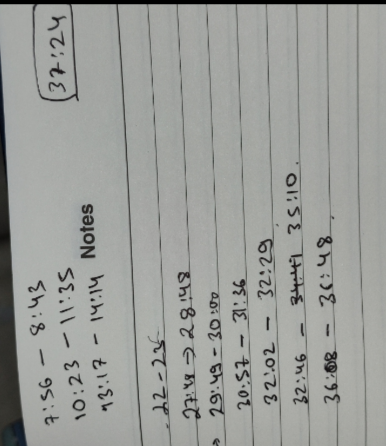 37:24
7:56 - 8:43
10:23 - 11:35
13:17 - 14:14
Notes
27:48 → 28:48
29:49 - 30:00
30:57 - 31:36
32:02 - 32:29
32:46 - 35:10.
36:08 - 36:48.